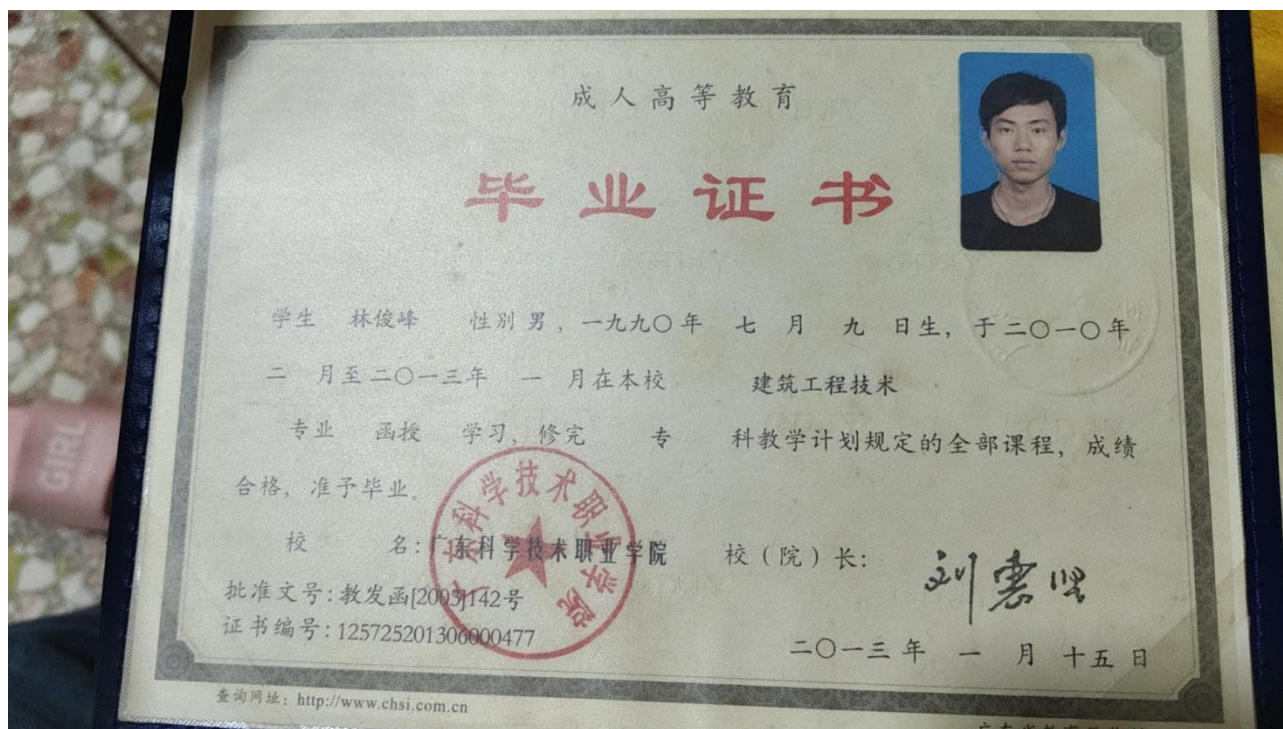 成人高等教育
毕业证书
学生 林俊峰 性别 男，一九九〇年 七 月 九 日生，于二〇一〇年
二 月至二〇一三年 一 月在本校 建筑工程技术
专业 函授 学习，修完 专 科教学计划规定的全部课程，成绩
合格，准予毕业。
校 名：广东科学技术职业学院 校（院）长：刘惠坚
批准文号：教发函[2003]142号
证书编号：125725201306000477
二〇一三年 一 月 十五 日
查询网址：http://www.chsi.com.cn
广东科学技术职业学院
GIRL